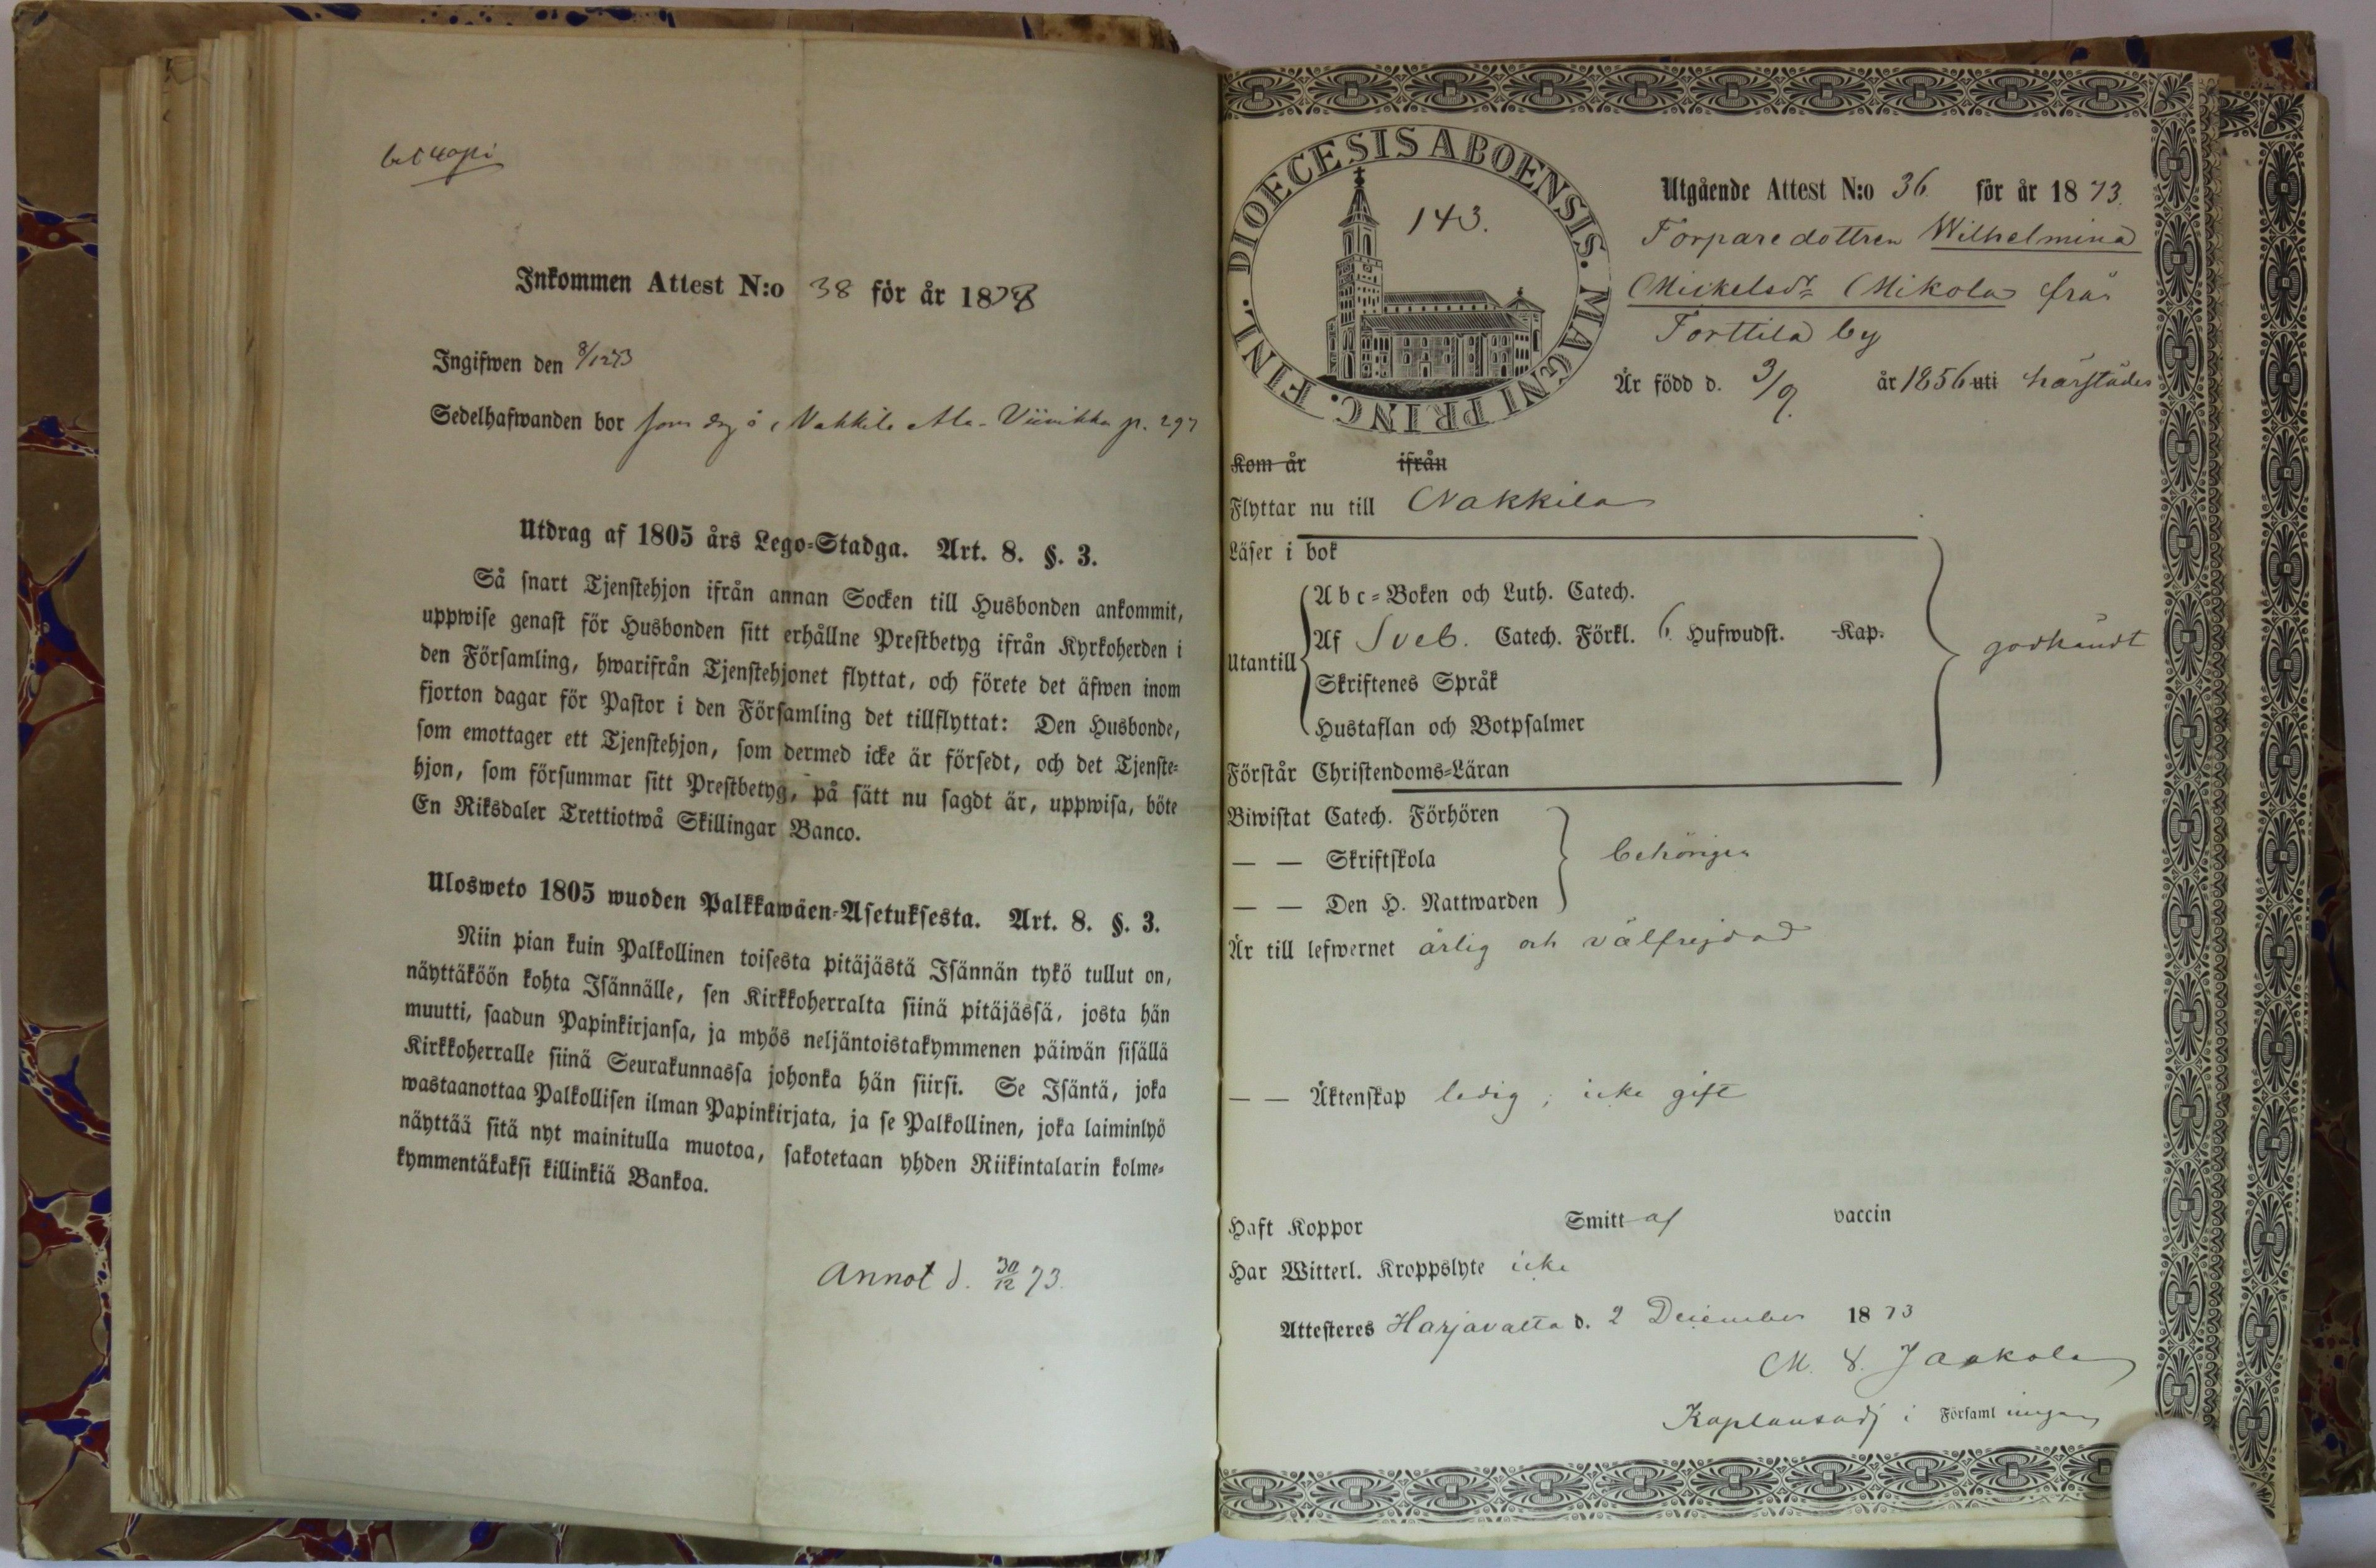 bet 40 pi
Inkommen Attest N:o 38 för år 1873
Ingifwen den 8/12 73
Sedelhafwanden bor som dräng å Nakkila Ala-Viinikka p. 297
Utdrag af 1805 års Lego-Stadga. Art. 8. §. 3.
Så snart Tjenstehjon ifrån annan Socken till Husbonden ankommit,
uppwise genast för Husbonden sitt erhållne Prestbetyg ifrån Kyrkoherden i
den Församling, hwarifrån Tjenstehjonet flyttat, och förete det äfwen inom
fjorton dagar för Pastor i den Församling det tillflyttat: Den Husbonde,
som emottager ett Tjenstehjon, som dermed icke är försedt, och det Tjenste-
hjon, som försummar sitt Prestbetyg, på sätt nu sagdt är, uppwisa, böte
En Riksdaler Trettiotwå Skillingar Banco.
Ulosweto 1805 wuoden Palkkawäen-Asetuksesta. Art. 8. §. 3.
Niin pian kuin Palkollinen toisesta pitäjästä Isännän tykö tullut on,
näyttäköön kohta Isännälle, sen Kirkkoherralta siinä pitäjässä, josta hän
muutti, saadun Papinkirjansa, ja myös neljäntoistakymmenen päiwän sisällä
Kirkkoherralle siinä Seurakunnassa johonka hän siirsi. Se Isäntä, joka
wastaanottaa Palkollisen ilman Papinkirjata, ja se Palkollinen, joka laiminlyö
näyttää sitä nyt mainitulla muotoa, sakotetaan yhden Riikintalarin kolme-
kymmentäkaksi killinkiä Bankoa.
Annot d. 30/12 73.
DIOECESIS ABOENSIS. MAGNI PRINC. FINL.
143.
Utgående Attest N:o 36 för år 1873.
Torparedottren Wilhelmina
Mickelsdr Mikola från
Torttila by
Är född d. 3/9 år 1856 uti härstädes
Kom år ifrån
Flyttar nu till Nakkila
Läser i bok
Utantill
Abc-Boken och Luth. Catech.
Af Sveb. Catech. Förkl. 6 Hufwudst. Kap.
Skriftenes Språk
Hustaflan och Botpsalmer
godkändt
Förstår Christendoms-Läran
Biwistat Catech. Förhören
— — Skriftskola
— — Den H. Nattwarden
behörigen
Är till lefwernet ärlig och välfrejdad
— — Äktenskap ledig, icke gift
Haft Koppor Smitt af vaccin
Har Witterl. Kroppslyte icke
Attesteres Harjavalta d. 2 December 1873
M. V. Jaakola
Kaplansadj i Församlingen